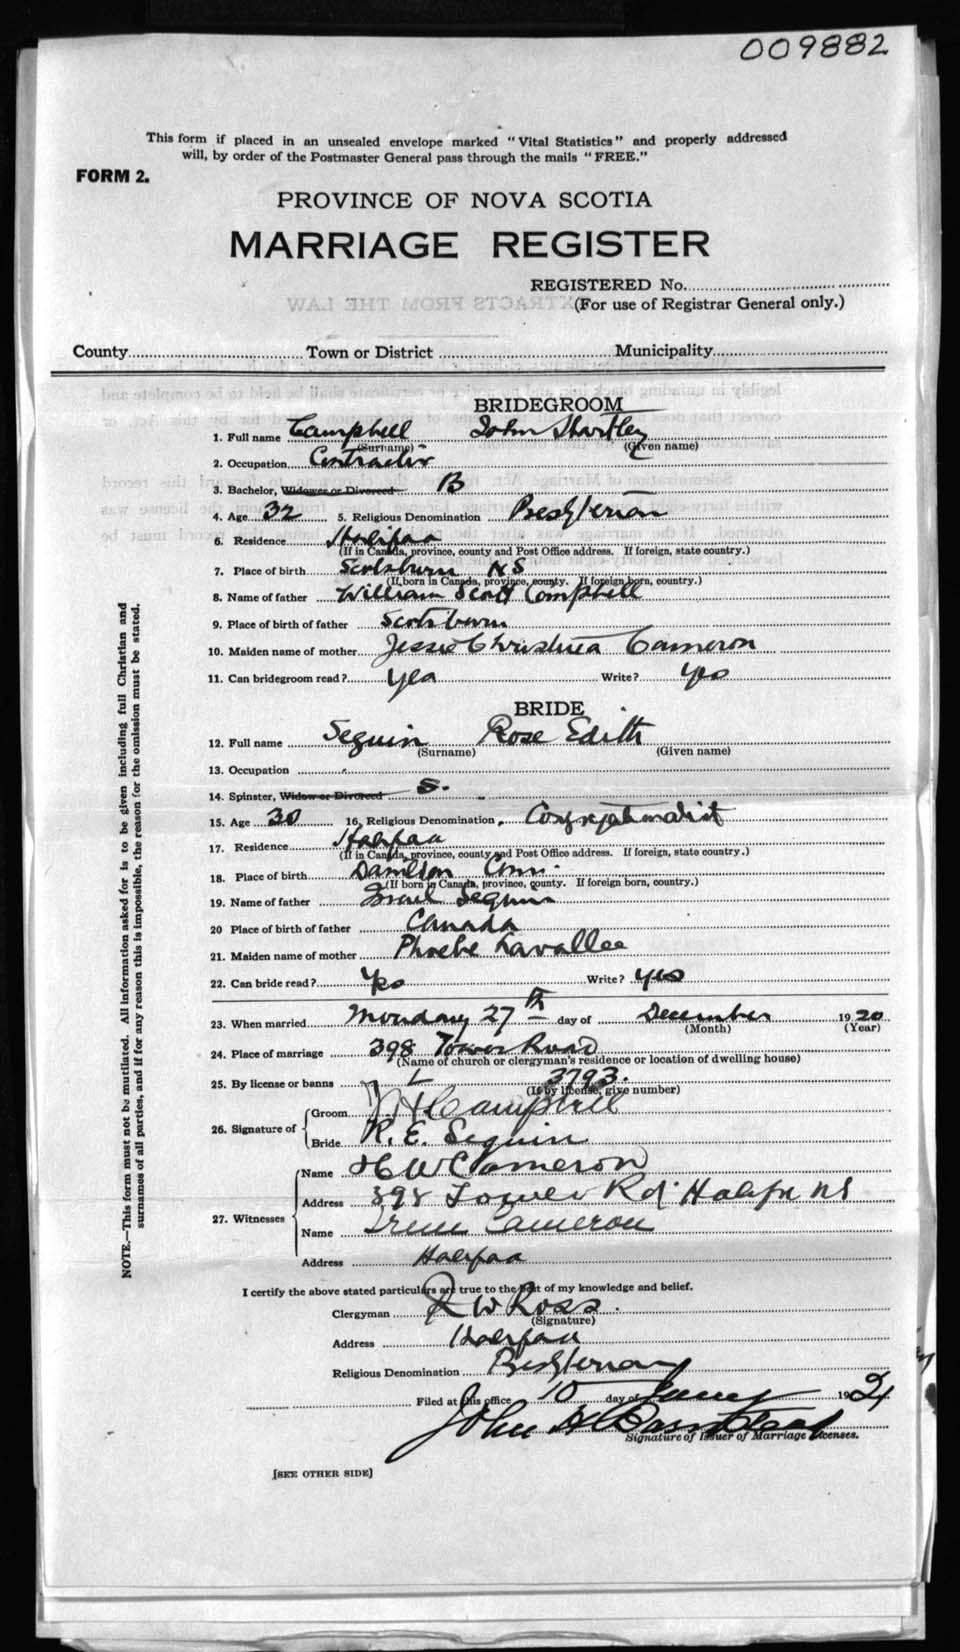 009882
This form if placed in an unsealed envelope marked "Vital Statistics" and properly addressed
will, by order of the Postmaster General pass through the mails "FREE."
FORM 2.
PROVINCE OF NOVA SCOTIA
MARRIAGE REGISTER
REGISTERED No.
(For use of Registrar General only.)
County Town or District Municipality
BRIDEGROOM
1. Full name Campbell John Hartley
(Surname) (Given name)
2. Occupation Contractor
3. Bachelor, Widower or Divorced B
4. Age 32 5. Religious Denomination Presbyterian
6. Residence Halifax
(If in Canada, province, county and Post Office address. If foreign, state country.)
7. Place of birth Scotsburn NS
(If born in Canada, province, county. If foreign born, country.)
8. Name of father William Scott Campbell
9. Place of birth of father Scotsburn
10. Maiden name of mother Jessie Christina Cameron
11. Can bridegroom read? yes Write? yes
BRIDE
12. Full name Seguin Rose Edith
(Surname) (Given name)
13. Occupation
14. Spinster, Widow or Divorced S.
15. Age 30 16. Religious Denomination Congregationalist
17. Residence Halifax
(If in Canada, province, county and Post Office address. If foreign, state country.)
18. Place of birth Conn.
(If born in Canada, province, county. If foreign born, country.)
19. Name of father Israel Seguin
20 Place of birth of father Canada
21. Maiden name of mother Phoebe Lavallee
22. Can bride read? Yes Write? yes
23. When married Monday 27th day of December 1920
(Month) (Year)
24. Place of marriage 398 Tower Road
(Name of church or clergyman's residence or location of dwelling house)
25. By license or banns L 3793.
(If by license, give number)
26. Signature of Groom J H Campbell
Bride R. E. Seguin
27. Witnesses Name H W Cameron
Address 398 Tower Rd Halifax NS
Name Irene Cameron
Address Halifax
I certify the above stated particulars are true to the best of my knowledge and belief.
Clergyman R W Ross.
(Signature)
Address Halifax
Religious Denomination Presbyterian
Filed at this office 10 day of Jany 1921
John H Barnstead
Signature of Issuer of Marriage Licenses.
[SEE OTHER SIDE]
NOTE.—This form must not be mutilated. All information asked for is to be given including full Christian and
surnames of all parties, and if for any reason this is impossible, the reason for the omission must be stated.